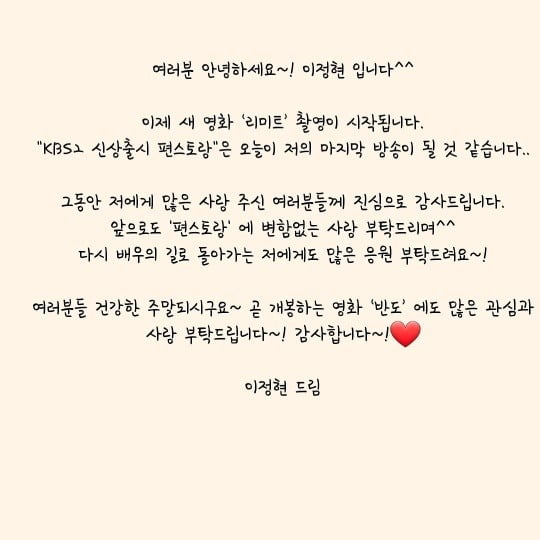 여러분 안녕하세요~! 이정현 입니다^^
이제 새 영화 '리미트' 촬영이 시작됩니다.
"KBS2 신상출시 편스토랑"은 오늘이 저의 마지막 방송이 될 것 같습니다..
그동안 저에게 많은 사랑 주신 여러분들께 진심으로 감사드립니다.
앞으로도 '편스토랑' 에 변함없는 사랑 부탁드리며^^
다시 배우의 길로 돌아가는 저에게도 많은 응원 부탁드려요~!
여러분들 건강한 주말되시구요~ 곧 개봉하는 영화 '반도' 에도 많은 관심과
사랑 부탁드립니다~! 감사합니다~!❤️
이정현 드림